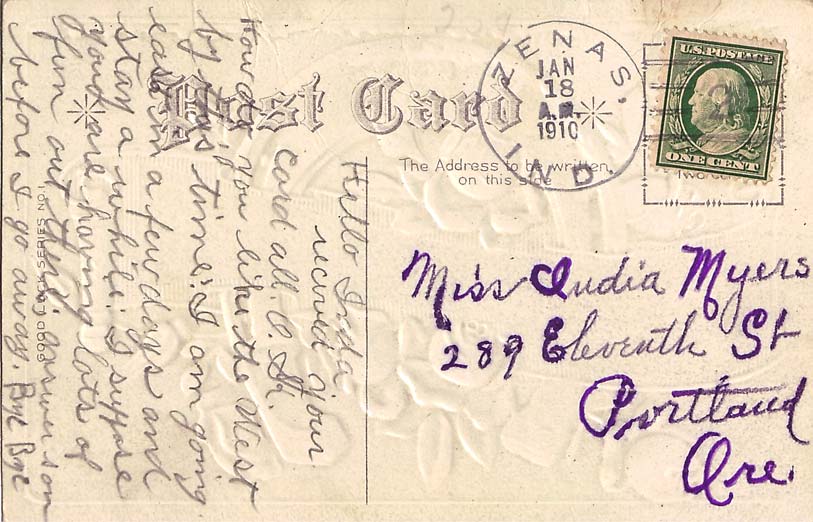 Post Card
The Address to be written
on this side
ZENAS,
JAN
18
A.M.
1910
IND.
U.S. POSTAGE
ONE CENT
TWO CENTS
GOOD LUCK SERIES NO. 1
Hello India,
recived your
card all. O. K.
How do you like the West
by this time. I am going
east in a few days and
stay a while. I suppose
you are having lots of
fun out there. answer soon
before I go away. Bye Bye
Miss India Myers
289 Eleventh St
Portland
Ore.